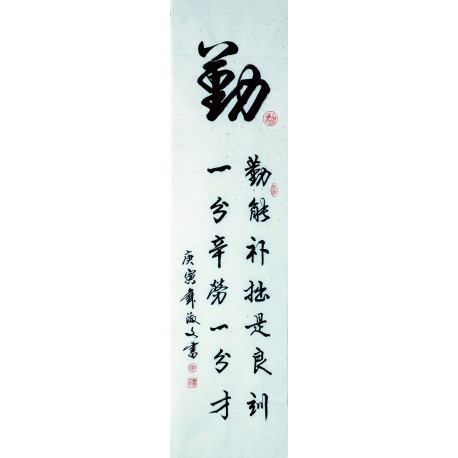 勤
勤能补拙是良訓
一分辛勞一分才
庚寅年文書